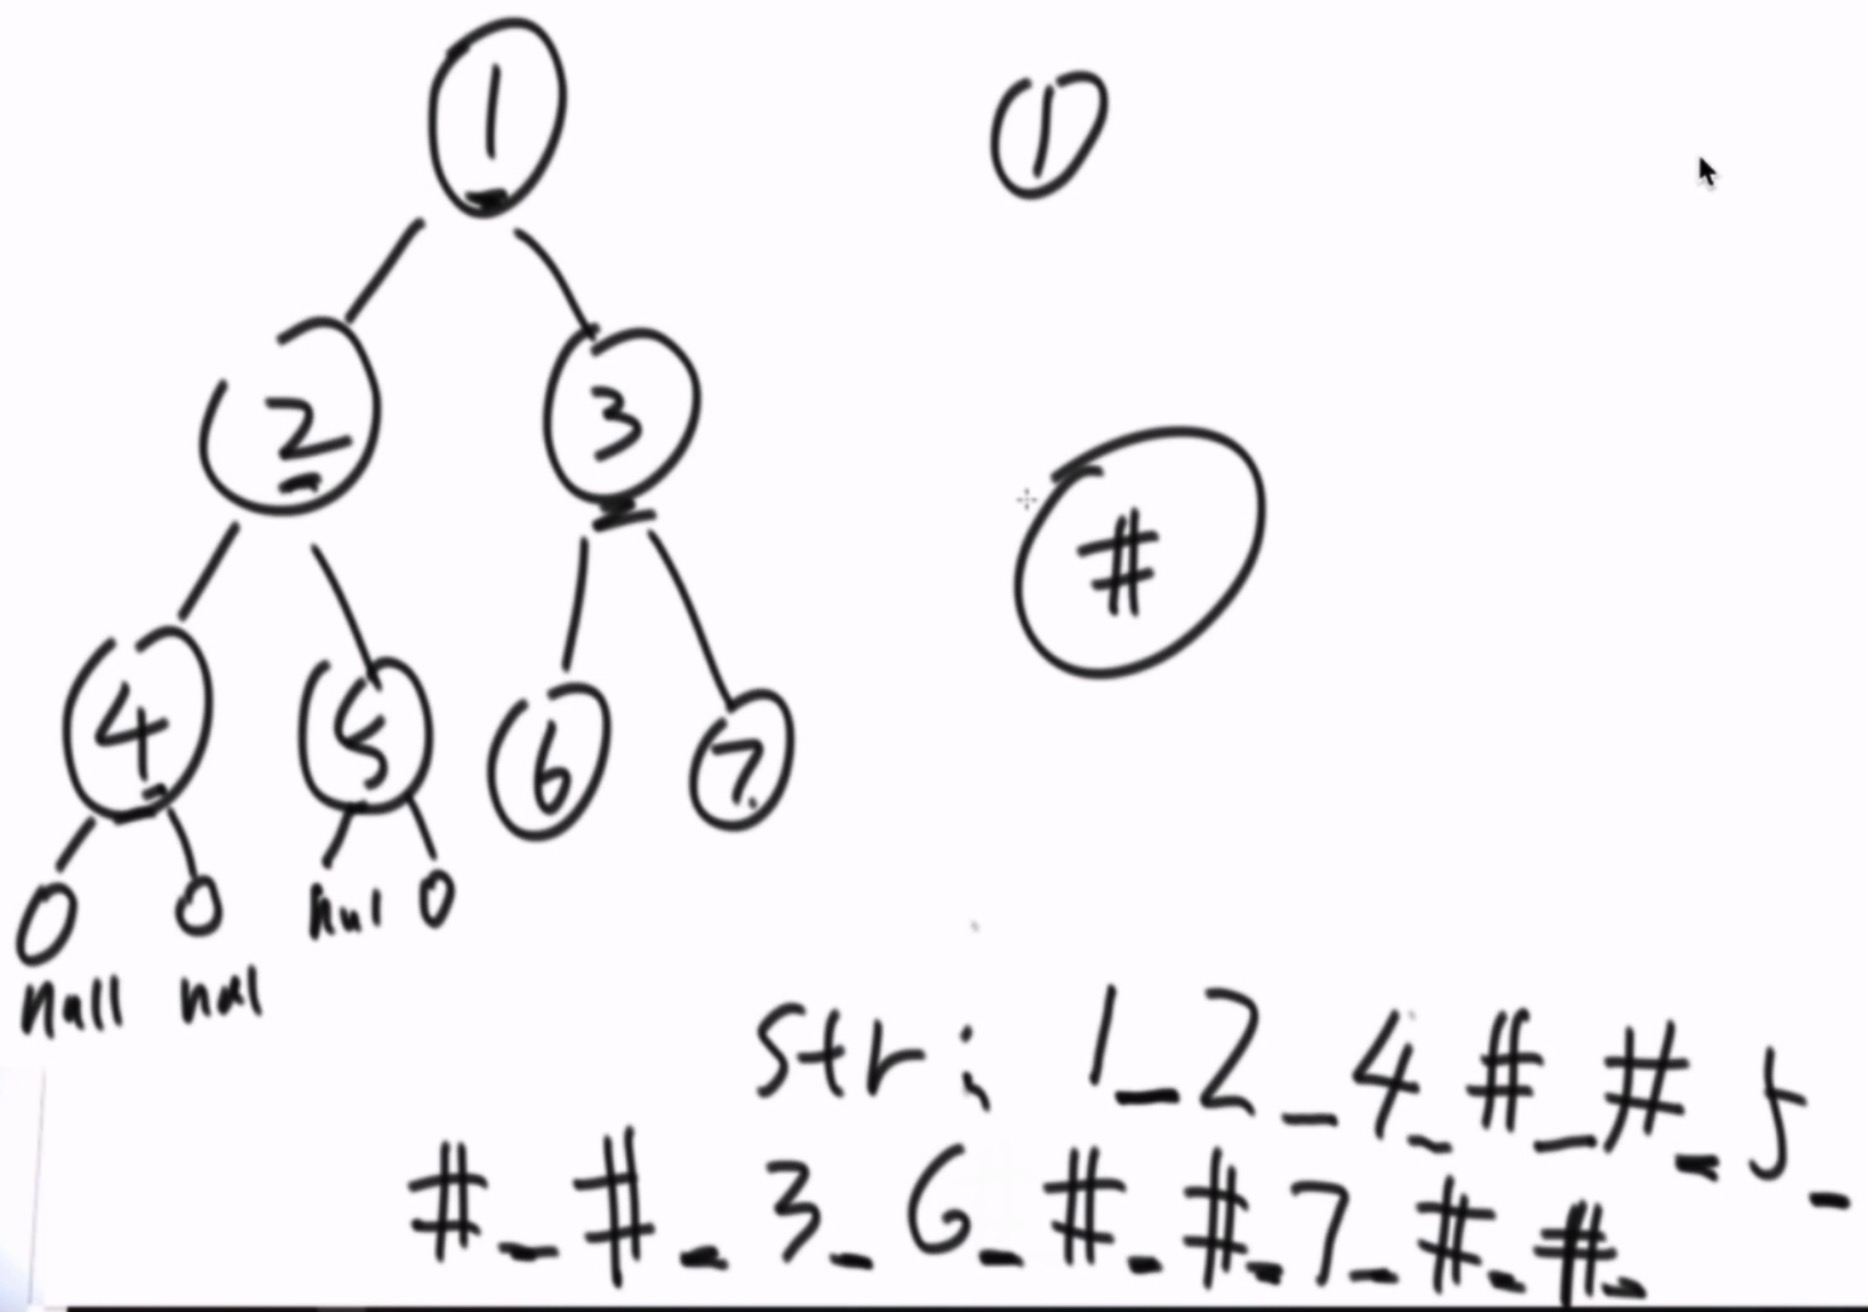 1
1
2
3
#
4 5 6 7
0 0 nul 0
null nul
str: 1_2_4_#_#_5_
#_#_3_6_#_#_7_#_#_